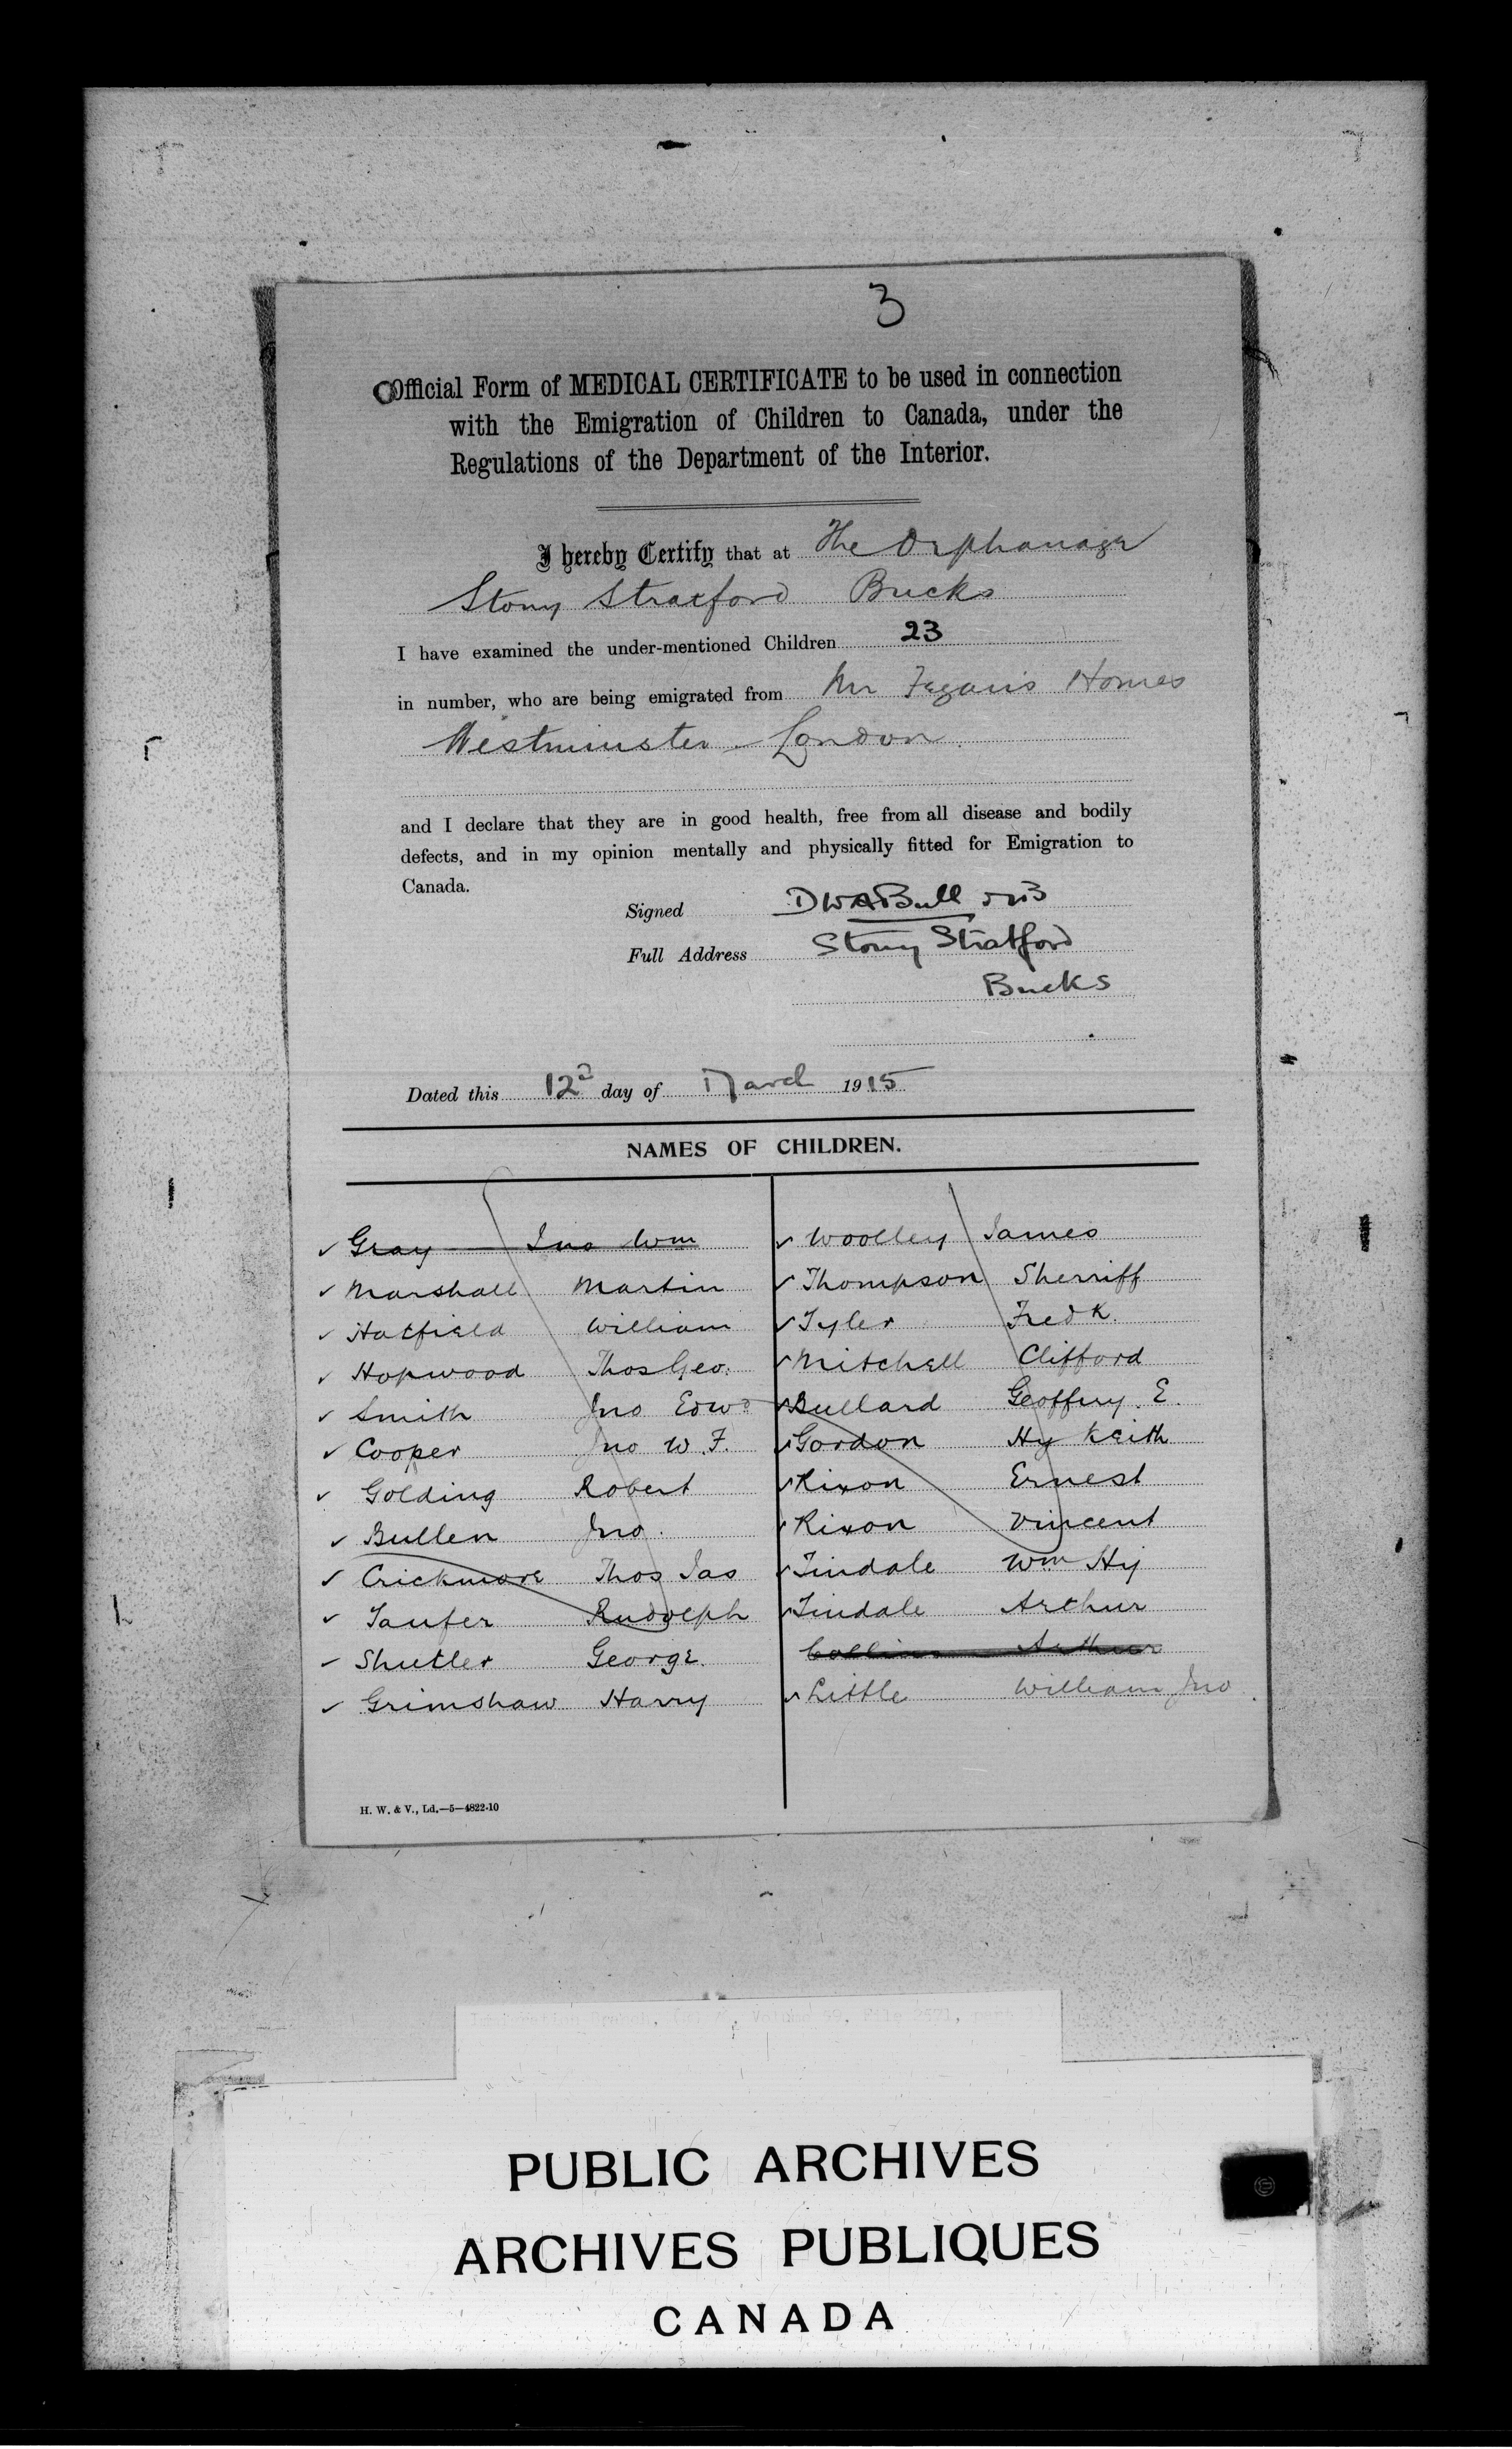 3
Official Form of MEDICAL CERTIFICATE to be used in connection
with the Emigration of Children to Canada, under the
Regulations of the Department of the Interior.
I hereby Certify that at The Orphanage
Stony Stratford Bucks
I have examined the under-mentioned Children 23
in number, who are being emigrated from Mr Fegan's Homes
Westminster London.
and I declare that they are in good health, free from all disease and bodily
defects, and in my opinion mentally and physically fitted for Emigration to
Canada.
Signed DWABull MB
Full Address Stony Stratford
Bucks
Dated this 12 day of March 1915
NAMES OF CHILDREN.
✓ Gray Jno Wm
✓ Marshall Martin
✓ Hatfield William
✓ Hopwood Thos Geo.
✓ Smith Jno Edwd
✓ Cooper Jno W. F.
✓ Golding Robert
✓ Bullen Jno.
✓ Crickmore Thos Jas
✓ Taufer Rudolph
✓ Shutler George.
✓ Grimshaw Harry
✓ Woolley James
✓ Thompson Sherriff
✓ Tyler Fredk.
✓ Mitchell Clifford
✓ Bullard Geoffury. E.
✓ Gordon Hy Keith
✓ Rixon Ernest
✓ Rixon Vincent
✓ Tindale Wm Hy
✓ Tindale Arthur
Collins Arthur
✓ Little William Jno
H. W. & V., Ld.—5—4822-10
PUBLIC ARCHIVES
ARCHIVES PUBLIQUES
CANADA